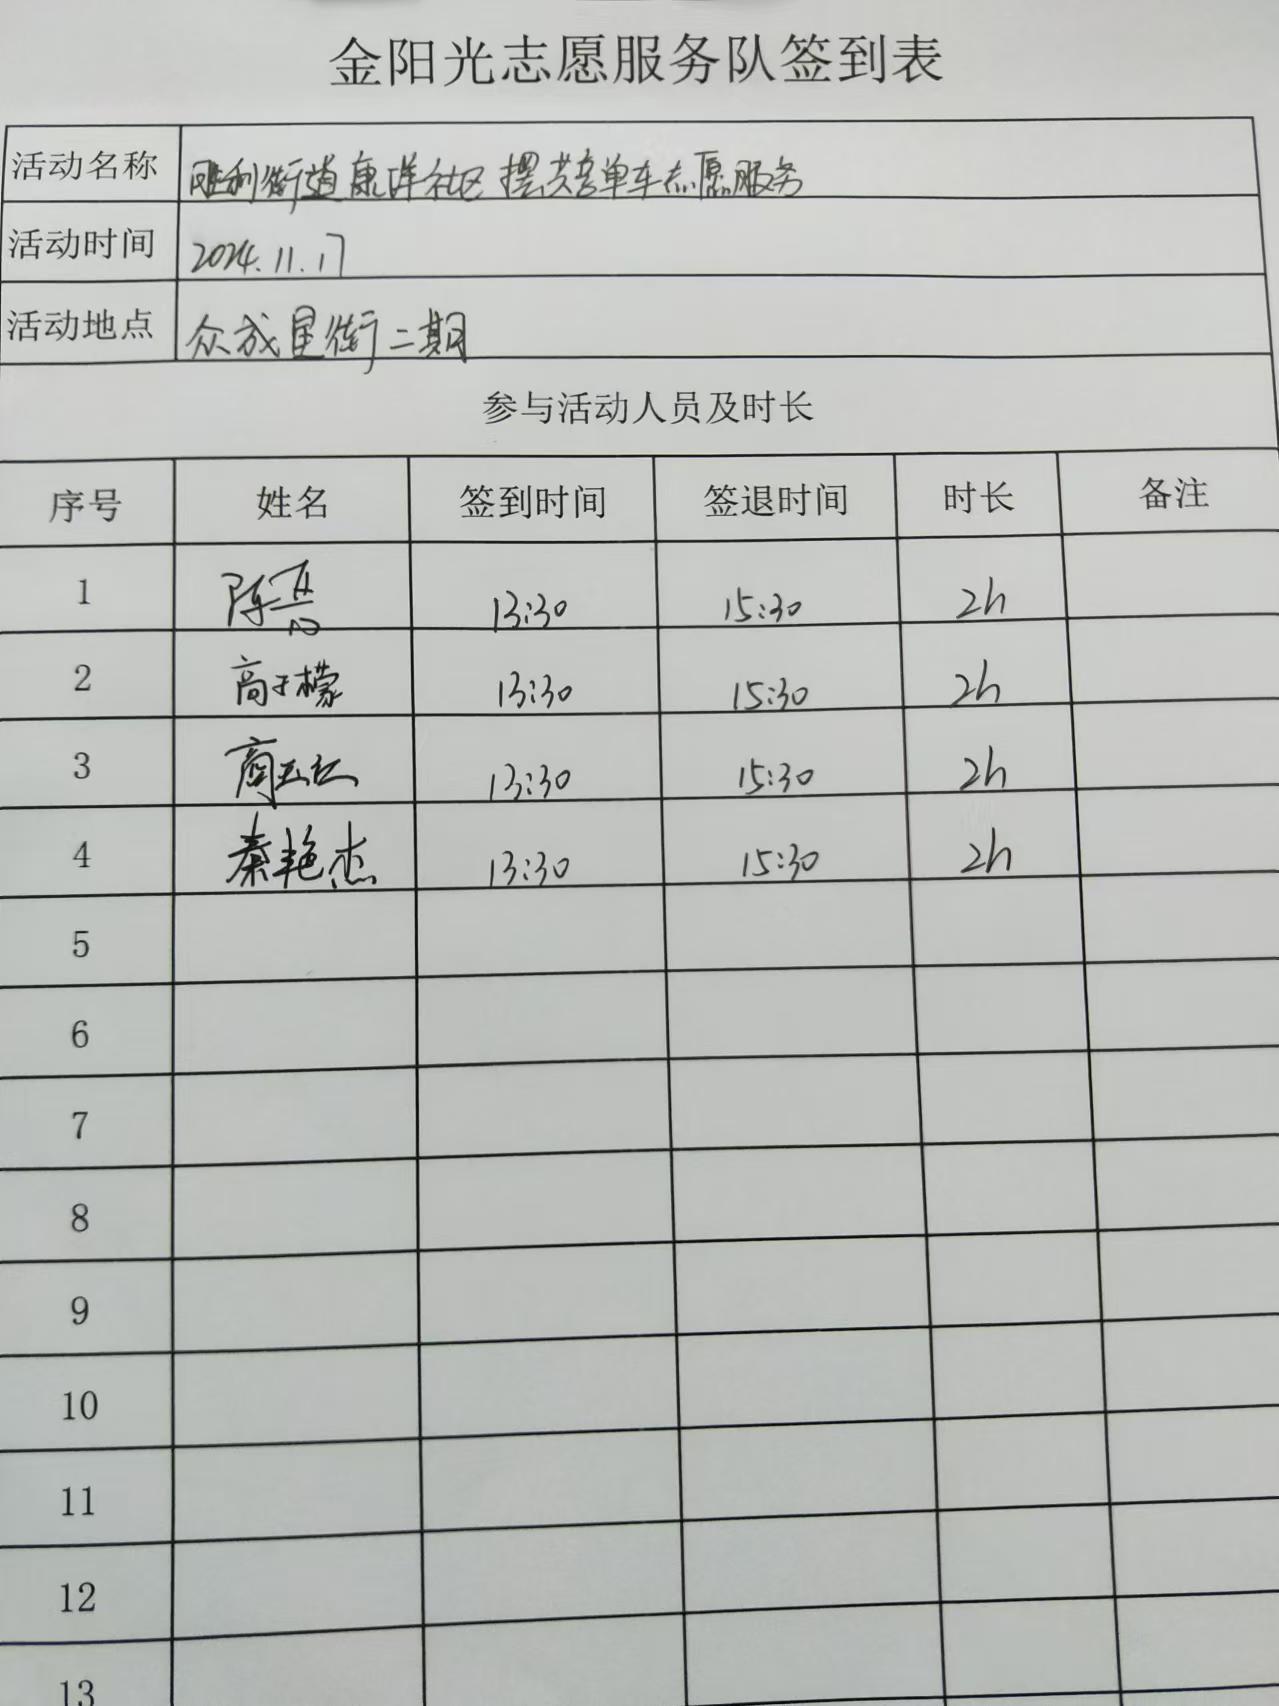 金阳光志愿服务队签到表
活动名称 胜利街道康洋社区摆共享单车志愿服务
活动时间 2024.11.17
活动地点 众成星街二期
参与活动人员及时长
序号 姓名 签到时间 签退时间 时长 备注
1 陈 13:30 15:30 2h
2 高于檬 13:30 15:30 2h
3 商玉红 13:30 15:30 2h
4 秦艳杰 13:30 15:30 2h
5
6
7
8
9
10
11
12
13